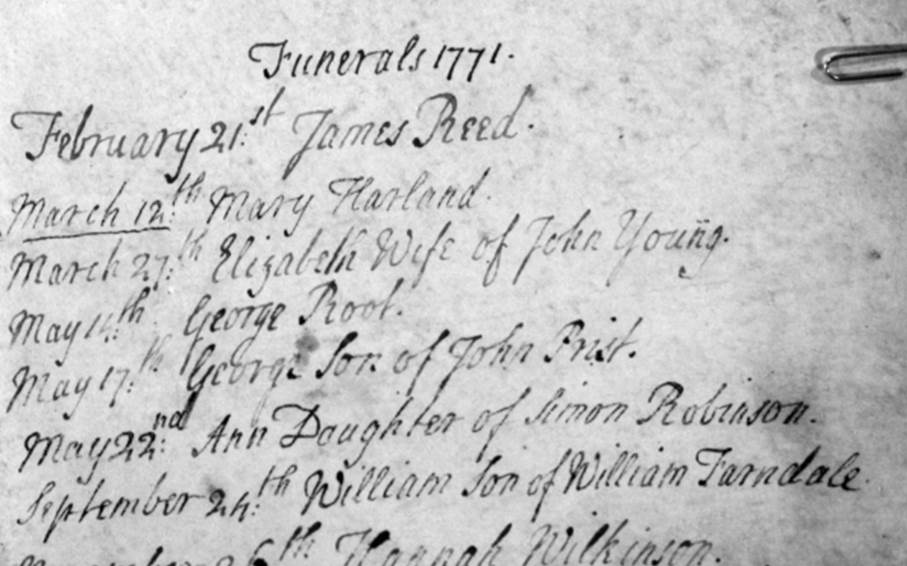 Funerals 1771.
February 21.st James Reed.
March 12.th Mary Harland.
March 27.th Elizabeth Wife of John Young.
May th George Root.
May 17.th George Son of John Prist.
May 22.nd Ann Daughter of Simon Robinson.
September 24.th William Son of William Farndale.
26th Hannah Wilkinson.